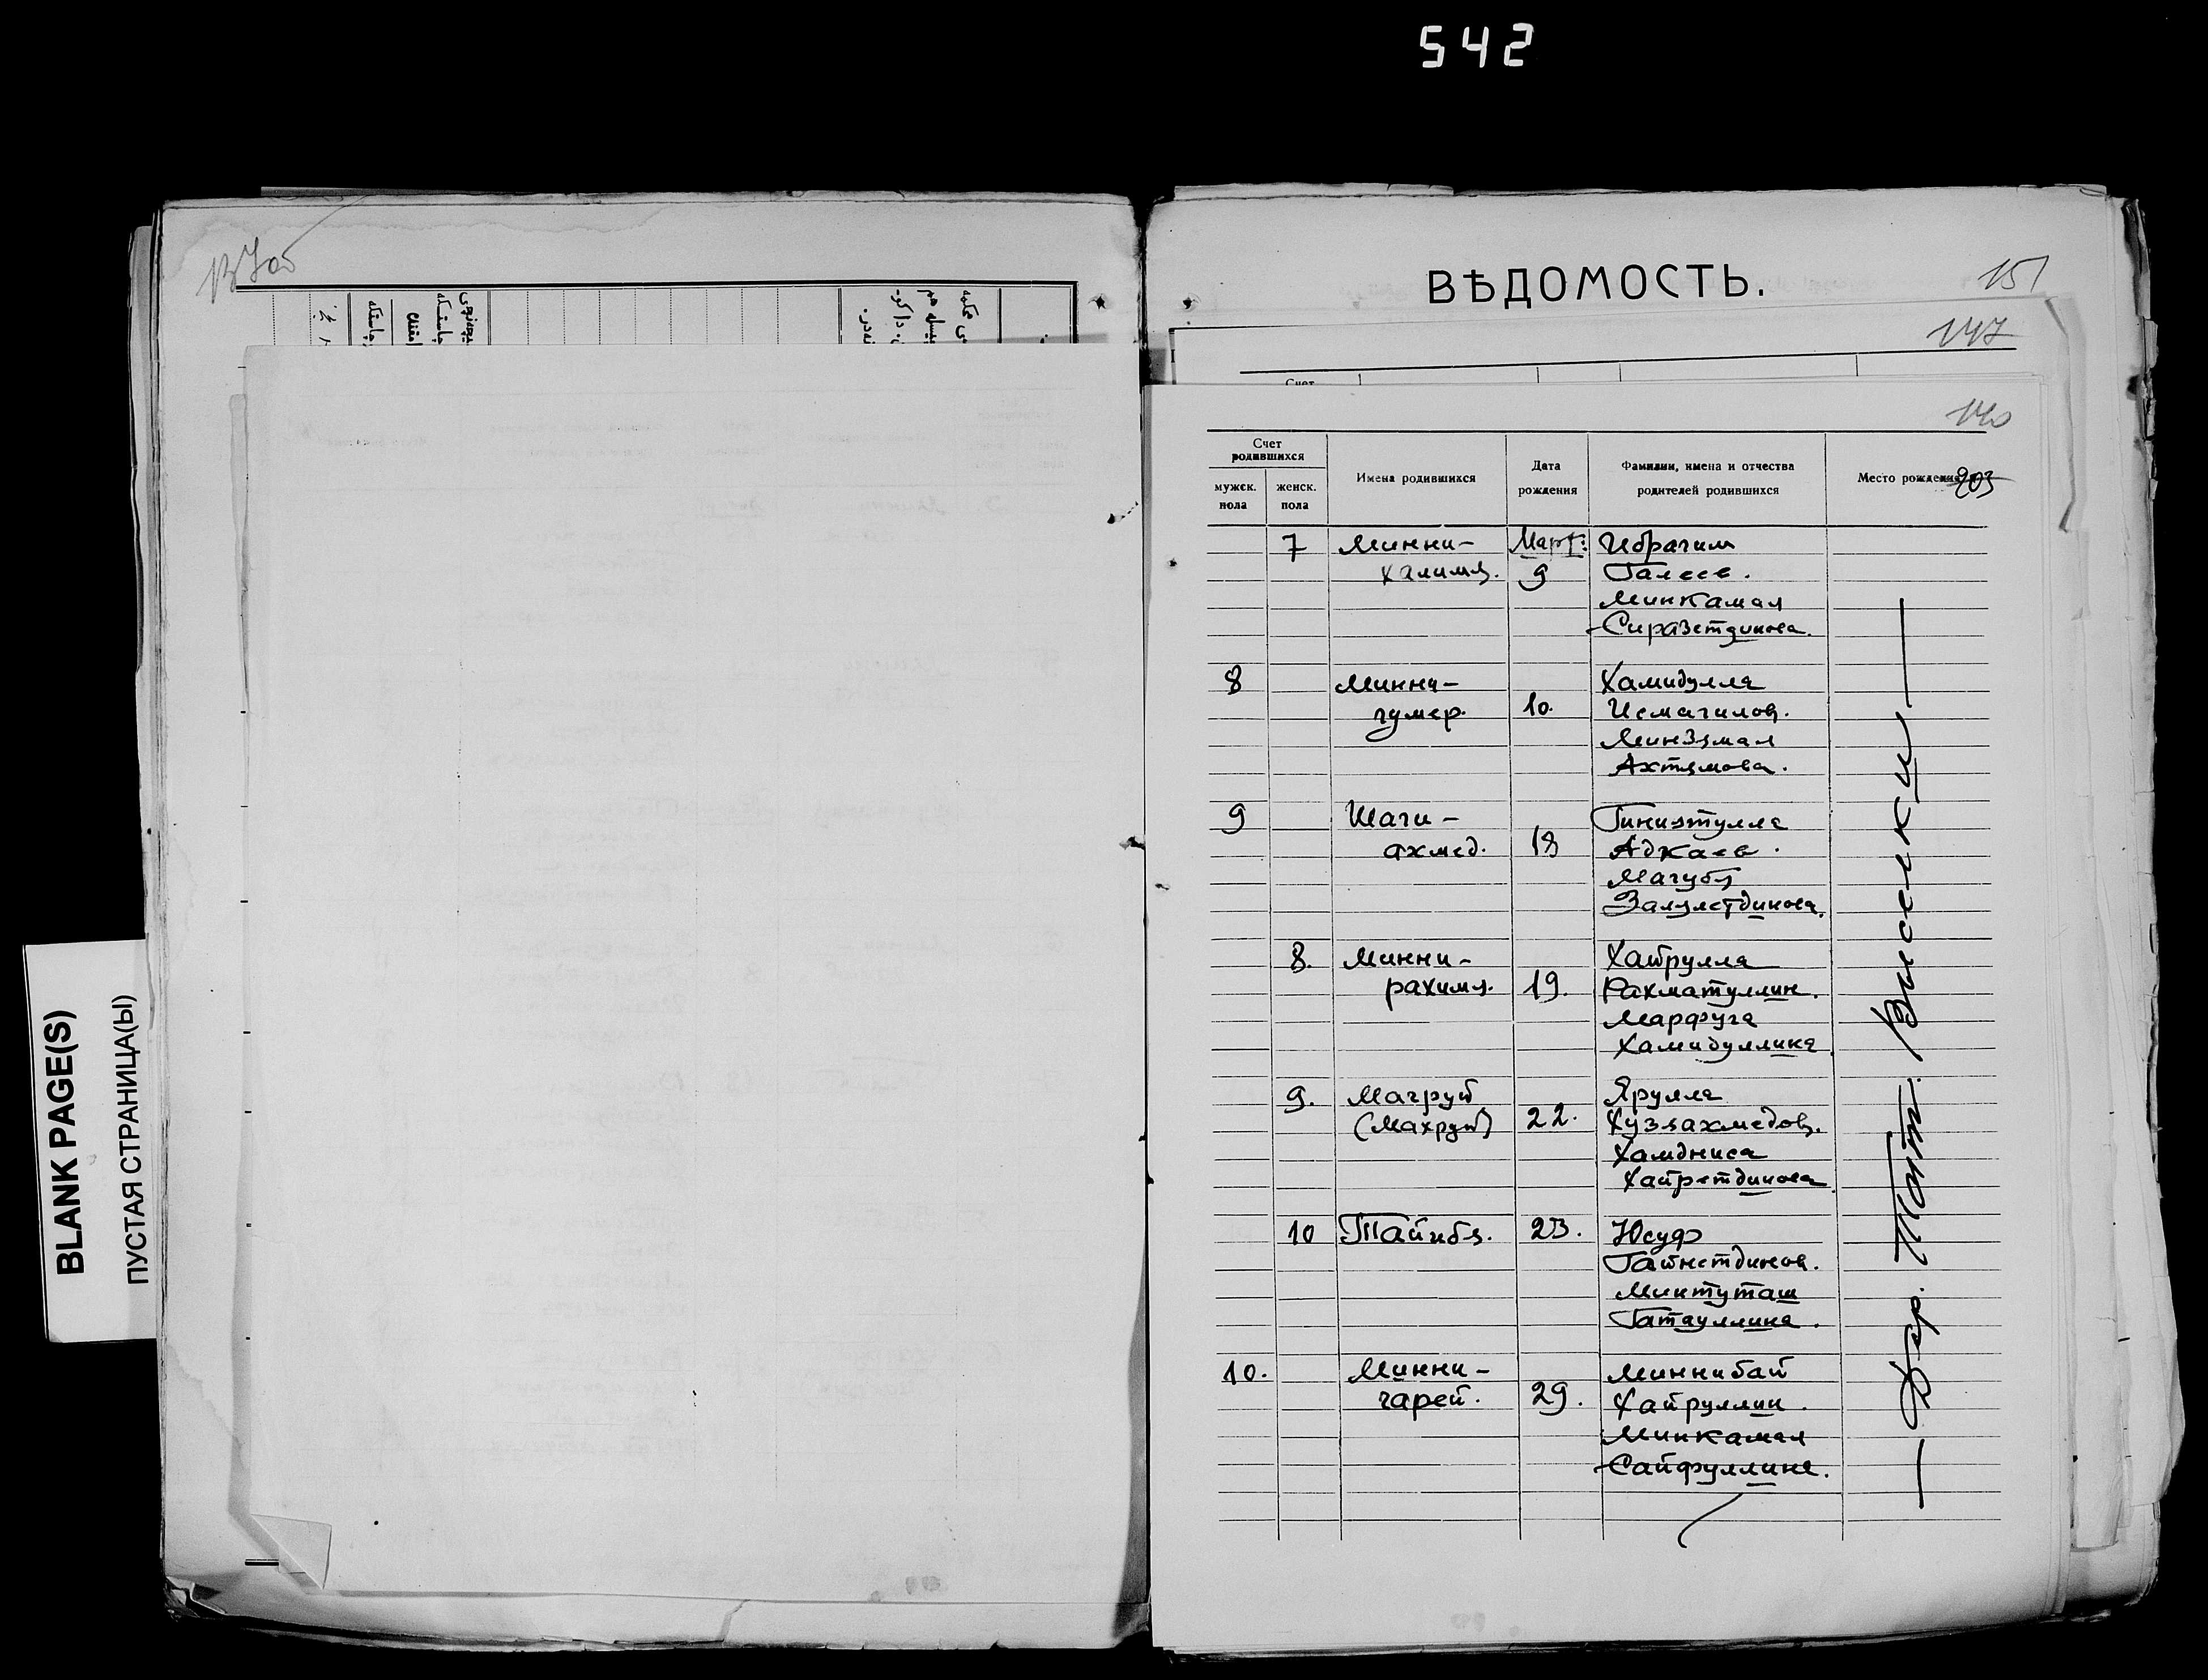 542
ВѢДОМОСТЬ.
151
147
140
203
BLANK PAGE(S)
ПУСТАЯ СТРАНИЦА(Ы)
Счет
Счет родившихся
мужск. пола
женск. пола
Имена родившихся
Дата рождения
Фамилии, имена и отчества
родителей родившихся
Место рождения
7 Минни- Март: Ибрагим
халимя. 9 Галеев.
Минкамал
Сиразетдинова.
8 Минни- Хамидулла
гумер. 10. Исмагилов.
Минзямал
Ахтямова.
9 Шаги- Гиниятулла
ахмед. 18 Аджаев.
Магубя
Залялетдинова.
8. Минни- Хайрулла
рахимя. 19. Рахматуллин.
Марфуга
Хамидуллина
9. Магруй Ярулла
(Махруй) 22. Хузяахмедов.
Хамдниса
Хайретдинова
10 Тайибя. 23. Юсуф
Гайнетдинов.
Минтуташ
Гатауллина.
10. Минни- Миннибай
гарей. 29. Хайруллин.
Минкамал
Сайфуллина.